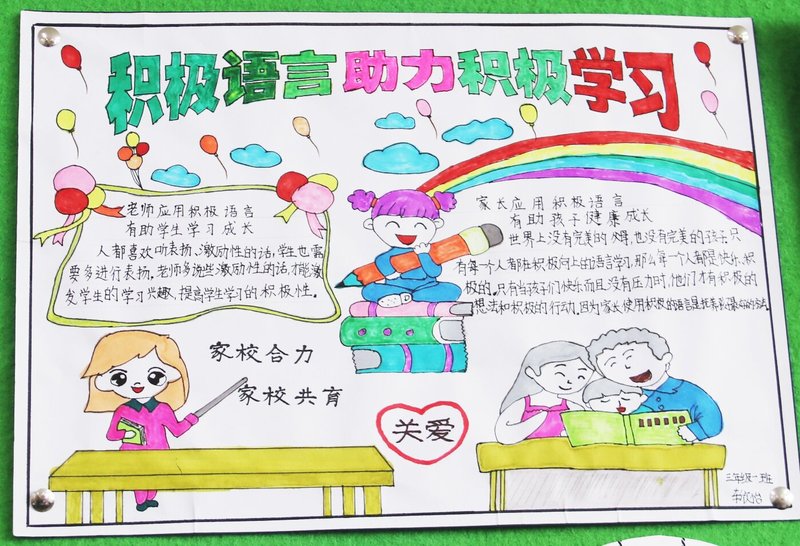 积极语言助力积极学习
老师应用积极语言
有助学生学习成长
人都喜欢听表扬、激励性的话,学生也需
要多进行表扬。老师多说些激励性的话,才能激
发学生的学习兴趣,提高学生学习的积极性。
家长应用积极语言
有助孩子健康成长
世界上没有完美的父母,也没有完美的孩子,只
有每一个人都在积极向上的语言学习,那么每一个人都是快乐、积
极的。只有当孩子们快乐而且没有压力时,他们才有积极的
想法和积极的行动,因为家长使用积极的语言是培养孩子最好的方法
家校合力
家校共育
关爱
三年级一班